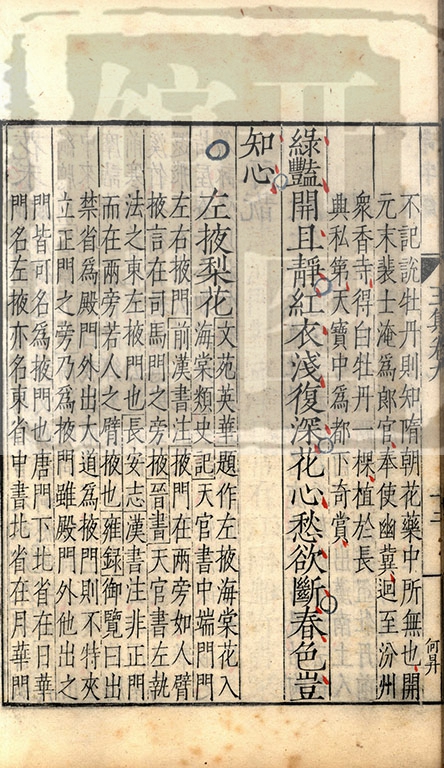 不記說牡丹則知隋朝花藥中所無也開
元末裴士淹為郎官奉使幽冀迴至汾州
衆香寺得白牡丹一棵植於長
興私第天寶中爲都下奇賞
綠豔閒且靜紅衣淺復深花心愁欲斷春色豈
知心
左掖梨花
文苑英華題作左掖海棠花入
海棠類史記天官書中端門門
左右掖門前漢書注掖門在兩旁如人臂
掖言在司馬門之旁掖晉書天官書左執
法之東左掖門也長安志漢書注非正門
而在兩旁若人之臂掖也雍録御覽曰出
禁省爲殿門外出大道爲掖門則不特夾
立正門之旁乃爲掖門雖殿門外他出之
門皆可名爲掖門也唐門下北省在日華
門名左掖亦名東省中書北省在月華門
何昇